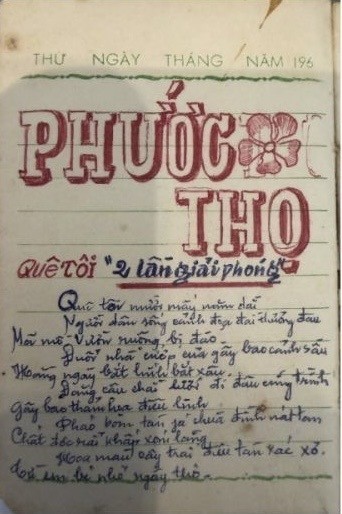 THỨ NGÀY THÁNG NĂM 196
PHƯỚC
THỌ
QUÊ TÔI "2 lần giải phóng"
Quê tôi mười mấy năm dài
Người dân sống cảnh đọa đai thương đau
Mồ mả vườn ruộng bị đào
Đuổi nhà cướp của gây bao cảnh sầu
Hàng ngày bắt lính bắt xâu
Gây bao thảm họa điêu linh
Pháo bom tàn phá chùa đình nát tan
Chất độc rải khắp xóm làng
Hoa màu cây trái điêu tàn xác xơ.
Trẻ em bé nhỏ ngây thơ